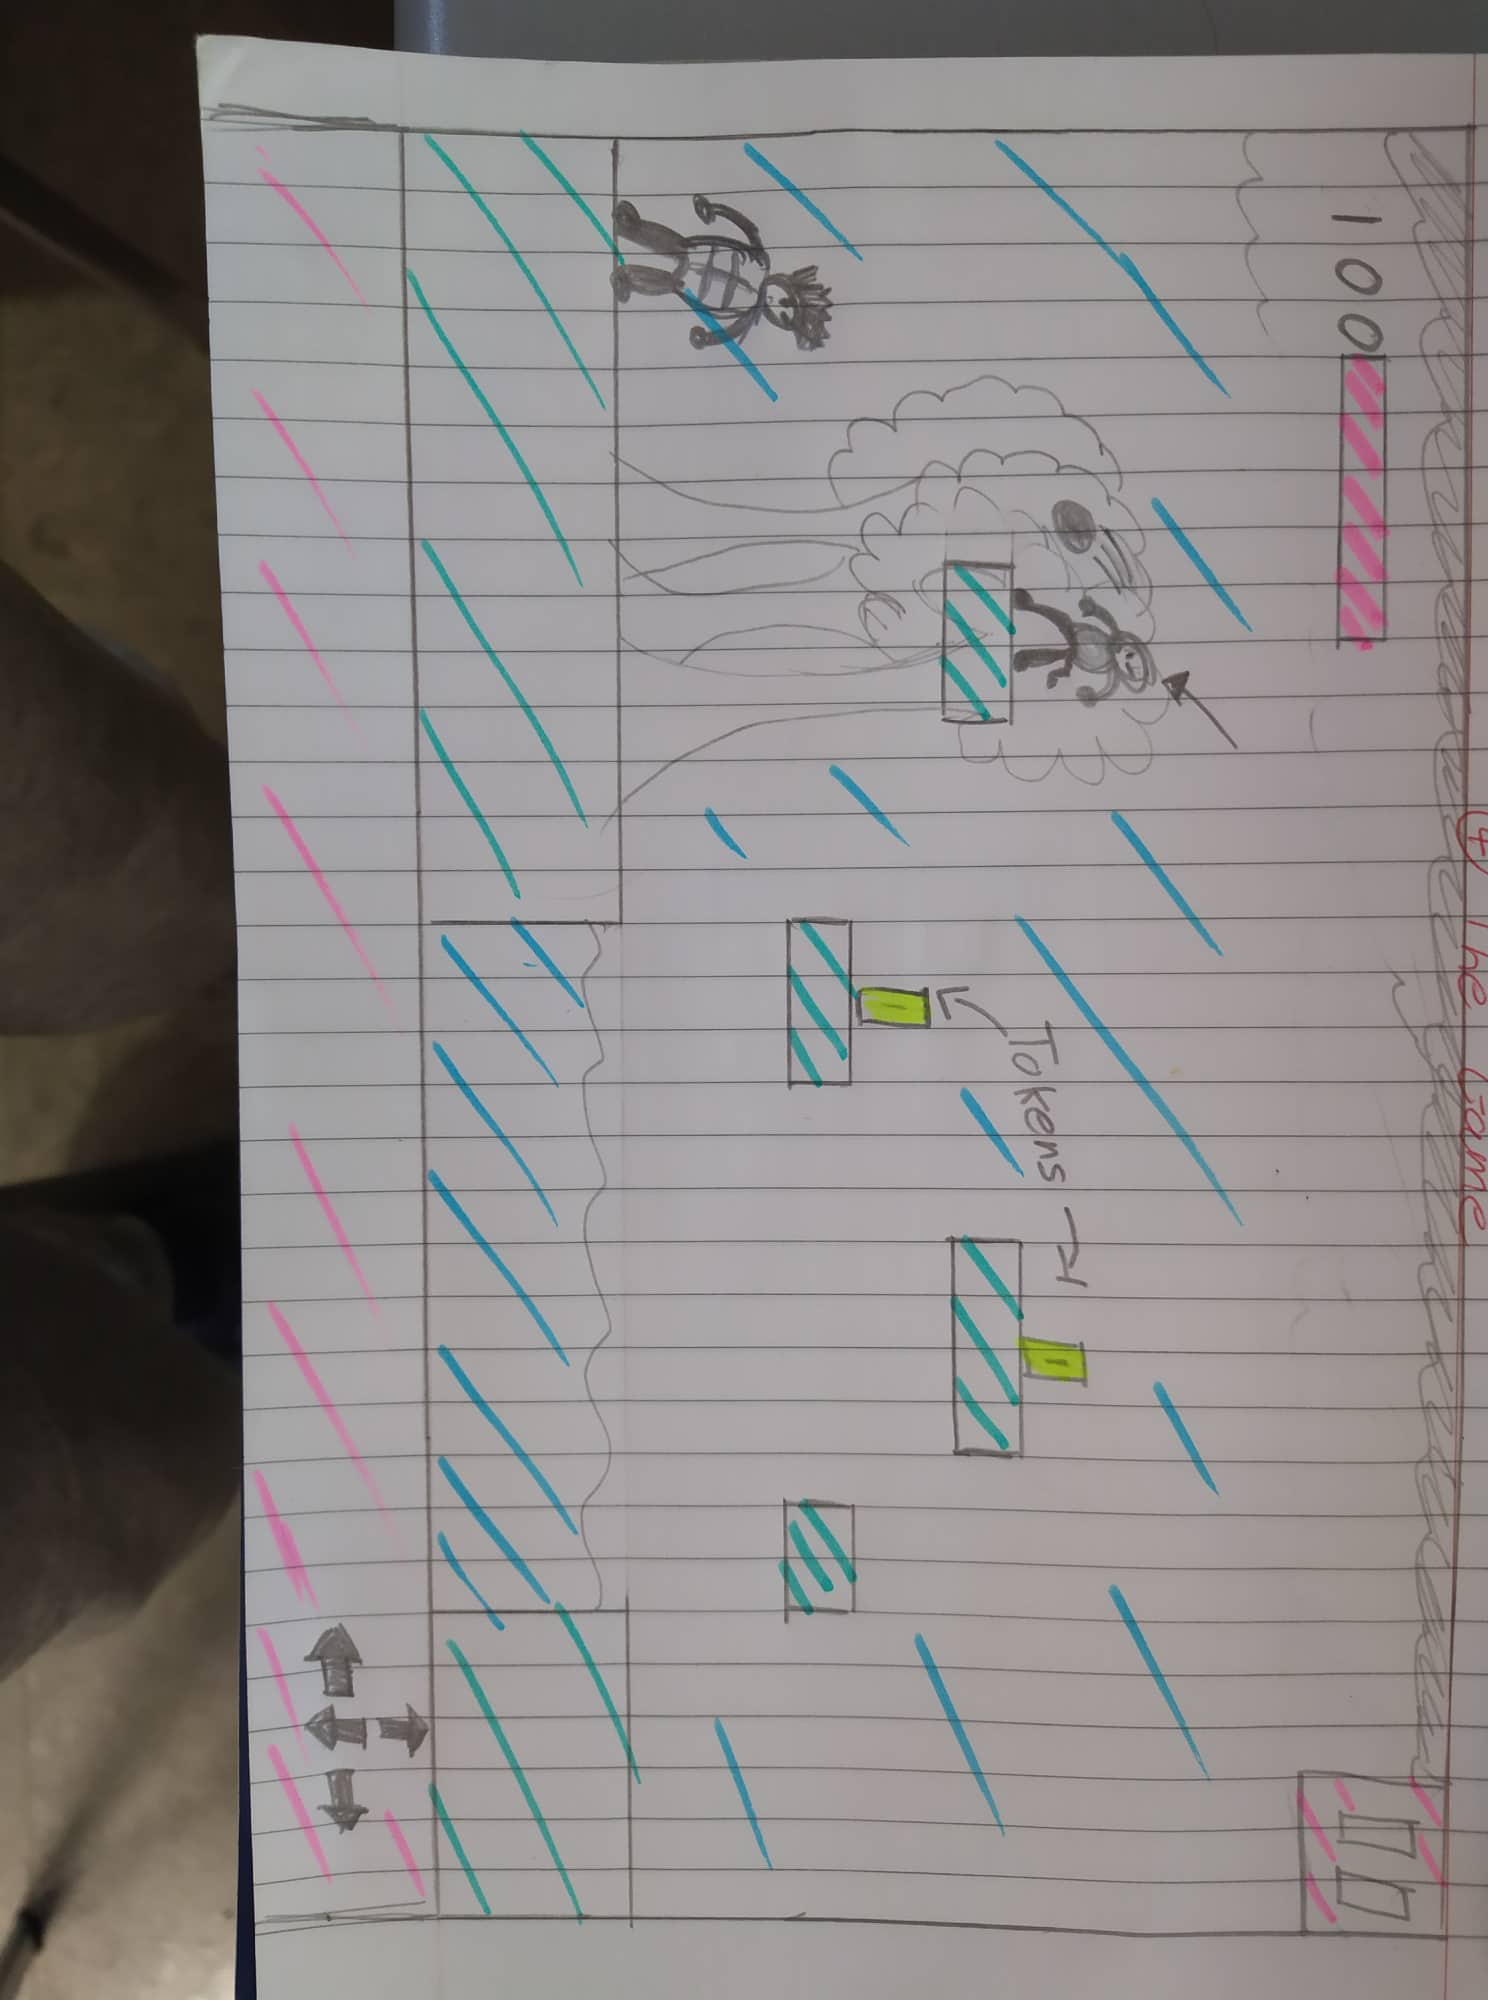 4) The Game
100
Tokens